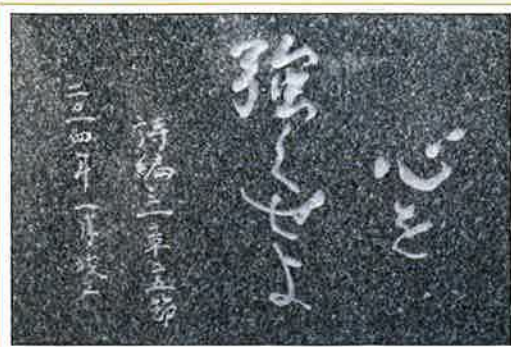 心を
強くせよ
詩編三一章二五節
二〇一四年一月竣工